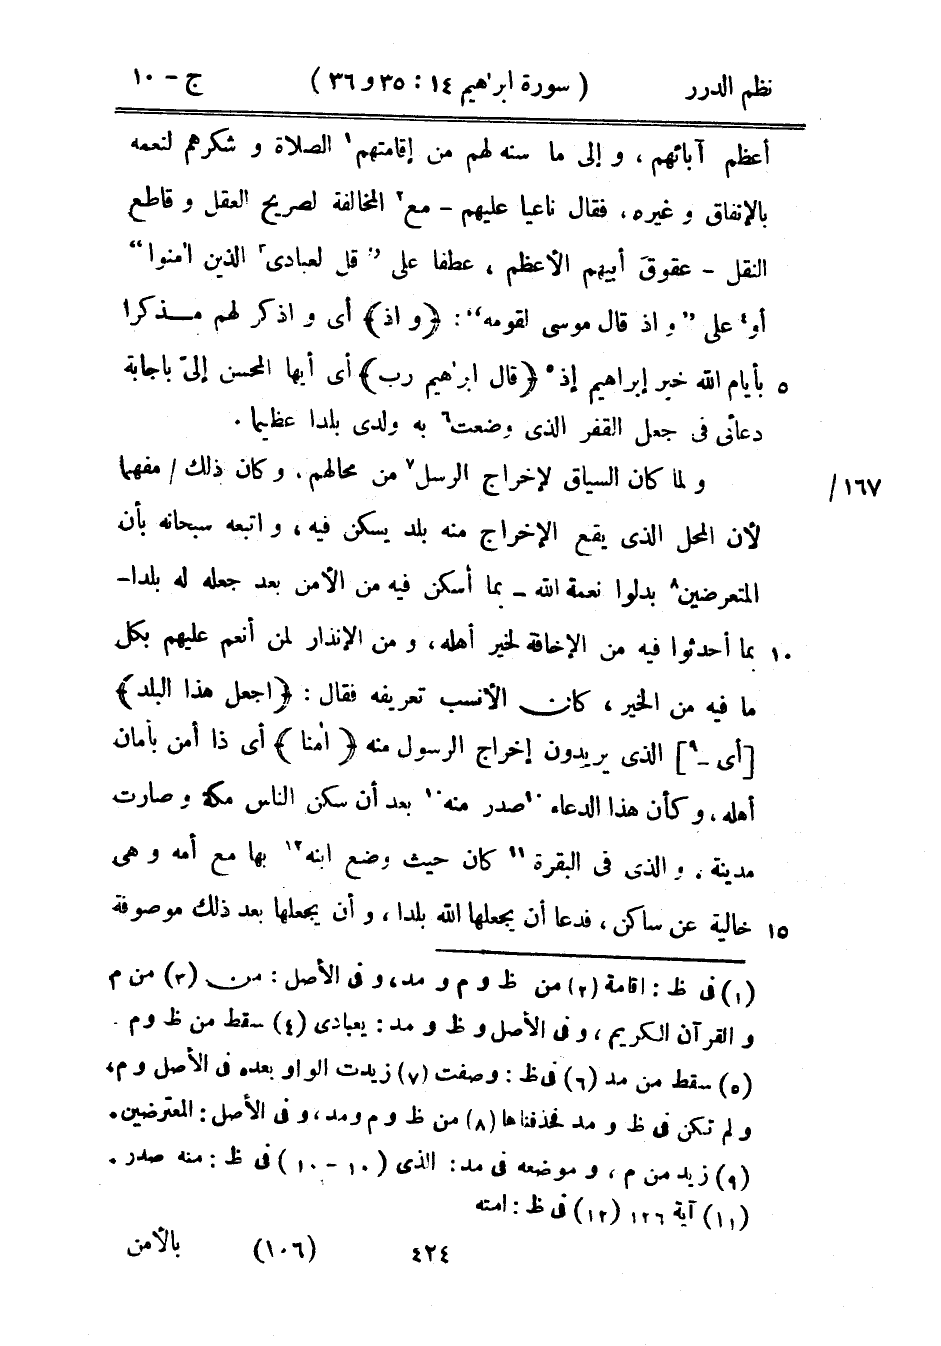 نظم الدرر ( سورة ابرٰهيم ١٤ : ٣٥ و ٣٦ ) ج - ١٠
أعظم آبائهم ، و إلى ما سنه لهم من إقامتهم١ الصلاة و شكرهم لنعمه
بالإنفاق و غيره ، فقال ناعيا عليهم - مع٢ المخالفة لصريح العقل و قاطع
النقل - عقوقَ أبيهم الأعظم ، عطفا على " قل لعبادى٣ الذين اٰمنوا "
أو٤ على " و اذ قال موسى لقومه " : ﴿ و اذ ﴾ أى و اذكر لهم مذكرا
٥ بأيام الله خبر إبراهيم إذ٥ ﴿ قال ابرٰهيم رب ﴾ أى أيها المحسن إلىّ باجابة
دعائى فى جعل القفر الذى وضعت٦ به ولدى بلدا عظيما .
و لما كان السياق لإخراج الرسل٧ من محالهم . و كان ذلك / مفهما
/ ١٦٧
لأن المحل الذى يقع الإخراج منه بلد يسكن فيه ، و اتبعه سبحانه بأن
المتعرضين٨ بدلوا نعمة الله - بما أسكن فيه من الأمن بعد جعله له بلدا -
١٠ بما أحدثوا فيه من الإخافة لخير أهله ، و من الإنذار لمن أنعم عليهم بكل
ما فيه من الخير ، كان الأنسب تعريفه فقال : ﴿ اجعل هذا البلد ﴾
[ أى -٩ ] الذى يريدون إخراج الرسول منه ﴿ اٰمنا ﴾ أى ذا أمن بأمان
أهله ، و كأن هذا الدعاء ١٠صدر منه١٠ بعد أن سكن الناس مكة و صارت
مدينة ، و الذى فى البقرة ١١ كان حيث وضع ابنه١٢ بها مع أمه و هى
١٥ خالية عن ساكن ، فدعا أن يجعلها الله بلدا ، و أن يجعلها بعد ذلك موصوفة
(١) فى ظ : اقامة (٢) من ظ و م و مد ، و فى الأصل : من (٣) من م
و القرآن الكريم ، و فى الأصل و ظ و مد : يعبادى (٤) سقط من ظ و م .
(٥) سقط من مد (٦) فى ظ : وصفت (٧) زيدت الواو بعده فى الأصل و م ،
و لم تكن فى ظ و مد فحذفناها (٨) من ظ و م و مد ، و فى الأصل : المعترضين .
(٩) زيد من م ، و موضعه فى مد : الذى (١٠ - ١٠) فى ظ : منه صدر .
(١١) آية ١٢٦ (١٢) فى ظ : امته
٤٢٤ (١٠٦) بالأمن